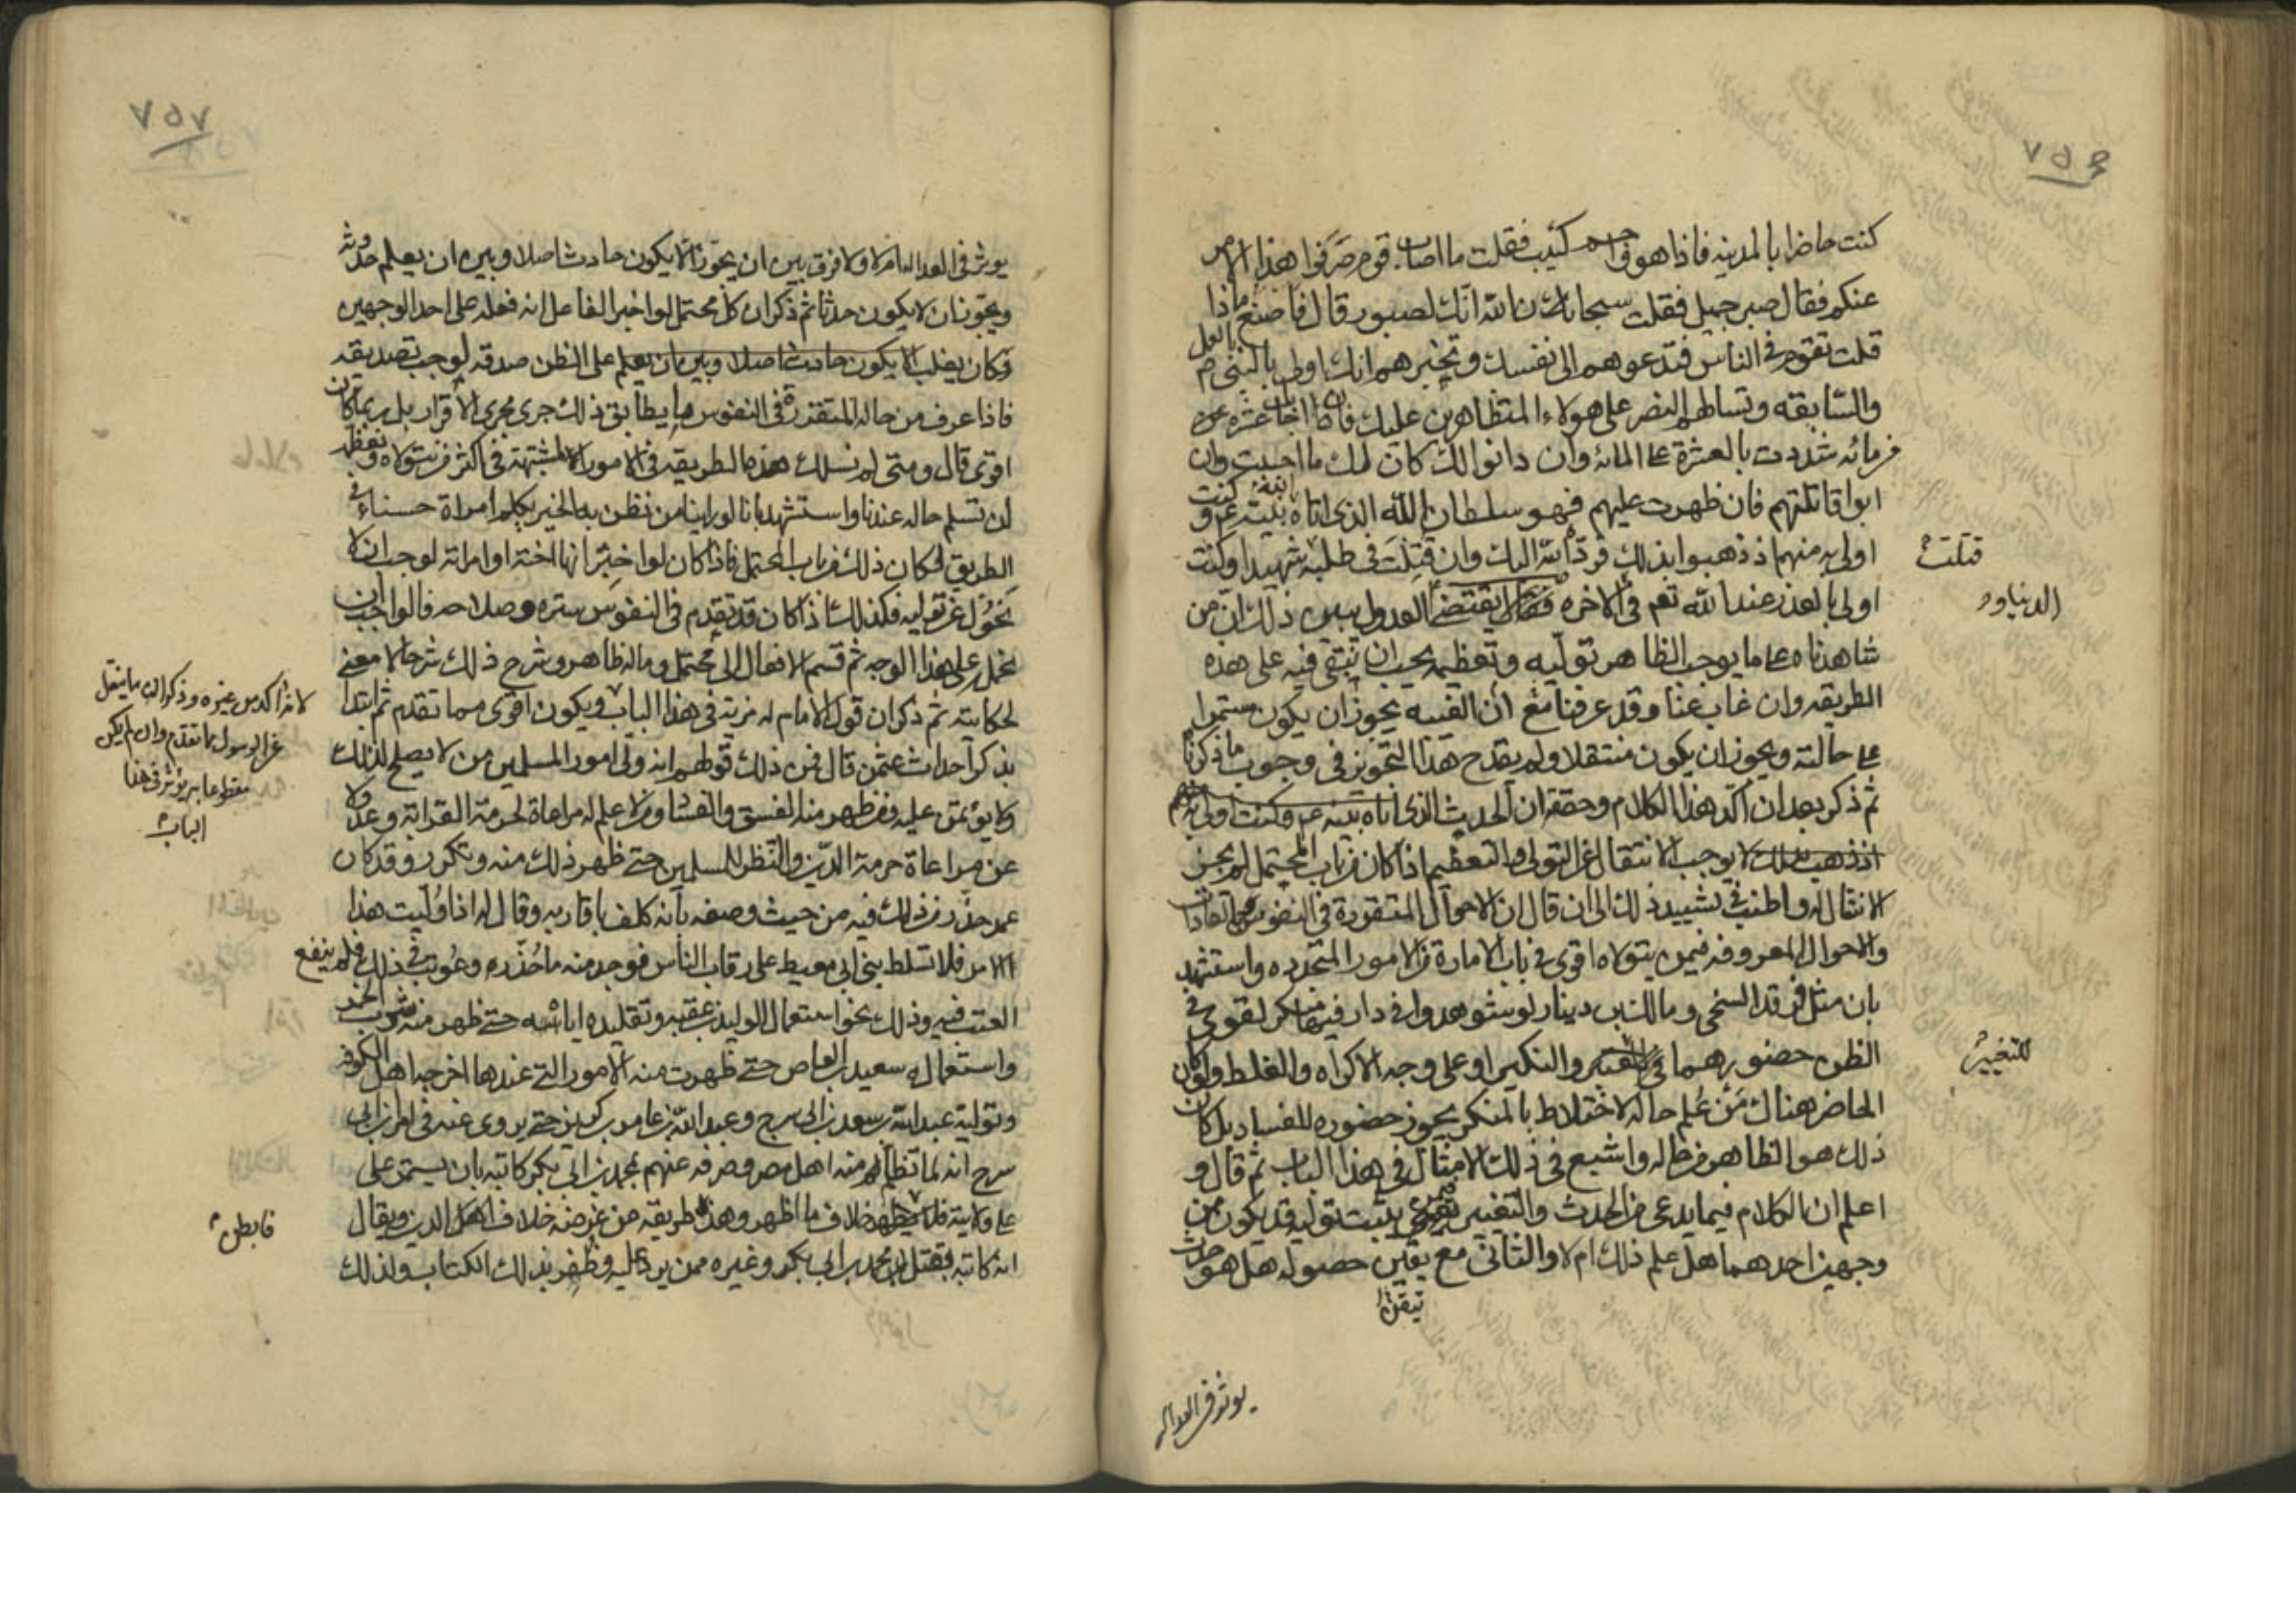 ٧٥٦
كنت حاضرا بالمدينه فاذا هو كئيب فقلت ما اصاب قوم صرفوا هذا الامر
عنكم فقال صبر جميل فقلت سبحان الله انك لصبور قال فاصنع ماذا
قلت تقوم في الناس فتدعوهم الى نفسك وتخبرهم انك اولى بالنبي
والسابقه وتسالهم النصر على هولاء المتظاهرين عليك فان اجابك عشرة من
مائه شددت بالعشرة على المائه وان دانوا لك كان لك ما احببت وان
ابوا قاتلتهم فان ظهرت عليهم فهو سلطان الله الذي اتاه نبيه وكنت
اولى به منهم اذ ذهبوا بذلك فرده الله اليك وان قتلت في طلبه شهيدا وكنت
قتلت
اولى بالعذر عند الله تعم في الاخره العدول يبين ذلك ان من
الدنيا و
شاهدناه على ما يوجب الظاهر توليه وتعظيمه يجب ان نبقى فيه على هذه
الطريقه وان غاب عنا وقد عرفنا مع ان الغيبه يجوز ان يكون مستمرا
على حالته ويجوز ان يكون منتقلا ولم يقدح هذا التجويز في وجوب ما ذكرنا
ثم ذكر بعد ان اكد هذا الكلام وحققه ان الحديث الذي اتاه نبيه وكنت اولى به
اذ ذهب لا يوجب الانتقال عن التولي والتعظيم اذا كان من باب المحتمل لم يجز
الانتقال له واطنب في تشييد ذلك الى ان قال ان الاحوال المتقررة في النفوس
والاحوال المعروفه فيمن يتولاه اقوى في باب الامارة من الامور المتجدده واستشهد
بان مثل فرقد السبخي ومالك بن دينار لو شوهدوا في دار فيها منكر لقوي في
الظن حضورهما والنكير او على وجه الاكراه والغلط ولو كان
للتغيير
الحاضر هناك من علم حاله الاختلاط بالمنكر يجوز حضوره للفساد بل كان
ذلك هو الظاهر من حاله واشبع في ذلك الامثال في هذا الباب ثم قال و
اعلم ان الكلام فيما يدعى من الحدث والتغيير فيمن يثبت توليه قد يكون من
وجهين احدهما هل علم ذلك ام لا والثاني مع يقين حصوله هل هو حدث
تيقن
يوثر في العداله
٧٥٧
يوثر في العداله ام لا ولا فرق بين ان يجوز الا يكون حادثا اصلا وبين ان يعلم حدوثه
ويجوز ان لا يكون حدثا ثم ذكر ان كل محتمل لو اخبر الفاعل انه فعله على احد الوجهين
وكان يغلب الا يكون حادثا اصلا وبين ان يعلم على الظن صدقه لوجب تصديقه
فاذا عرف من حاله المتقررة في النفوس ما يطابق ذلك جرى مجرى الاقرار بل ربما كان
اقوى قال ومتى لم نسلك هذه الطريقه في الامور المشتبهة في اكثر من نتولاه ونعظمه
ان تسلم حاله عندنا واستشهد بانا لو راينا من نظن به الخير يكلم امراة حسناء في
الطريق لكان ذلك من باب المحتمل فاذا كان لو اخبر انها اخته او امراته لوجب ان لا
نحول عن توليه فكذلك اذا كان قد تقدم في النفوس ستره وصلاحه فالواجب ان
نحمل على هذا الوجه ثم قسم الافعال الى محتمل وما له ظاهر وشرح ذلك شرحا لا معنى
لحكايته ثم ذكر ان قول الامام له مزية في هذا الباب ويكون اقوى مما تقدم ثم ابتدا
لانه اكد من غيره وذكر ان ما ينقل
عن الرسول مما تقدم وان لم يكن
مقطوعا به يوثر في هذا
الباب
بذكر احداث عثمن قال فمن ذلك قولهم انه ولى امور المسلمين من لا يصلح لذلك
ولا يوتمن عليه ومن ظهر منه الفسق والفساد ومن لا علم له مراعاة لحرمة القرابة وعدولا
عن مراعاة حرمة الدين والنظر للمسلمين حتى ظهر ذلك منه وتكرر وقد كان
عمر حذر من ذلك فيه من حيث وصفه بانه كلف باقاربه وقال له اذا وليت هذا
الامر فلا تسلط بني ابي معيط على رقاب الناس فوجد منه ما حذره وعوتب في ذلك فلم ينفع
العتب فيه وذلك نحو استعمال الوليد بن عقبه وتقليده اياه حتى ظهر منه شرب الخمر
واستعماله سعيد بن العاص حتى ظهرت منه الامور التي عندها اخرجه اهل الكوفه
وتوليه عبد الله بن سعد بن ابي سرح وعبد الله بن عامر بن كريز حتى يروى عنه في امر ابن ابي
سرح انه لما تظلم منه اهل مصر وصرفه عنهم بمحمد بن ابي بكر كاتبه بان يستمر على
على ولايته خلاف ما اظهر وهذه طريقه من غرضه خلاف اهل الدين ويقال
فابطن
انه كاتبه بقتل محمد بن ابي بكر وغيره ممن يرد عليه وظفر بذلك الكتاب ولذلك